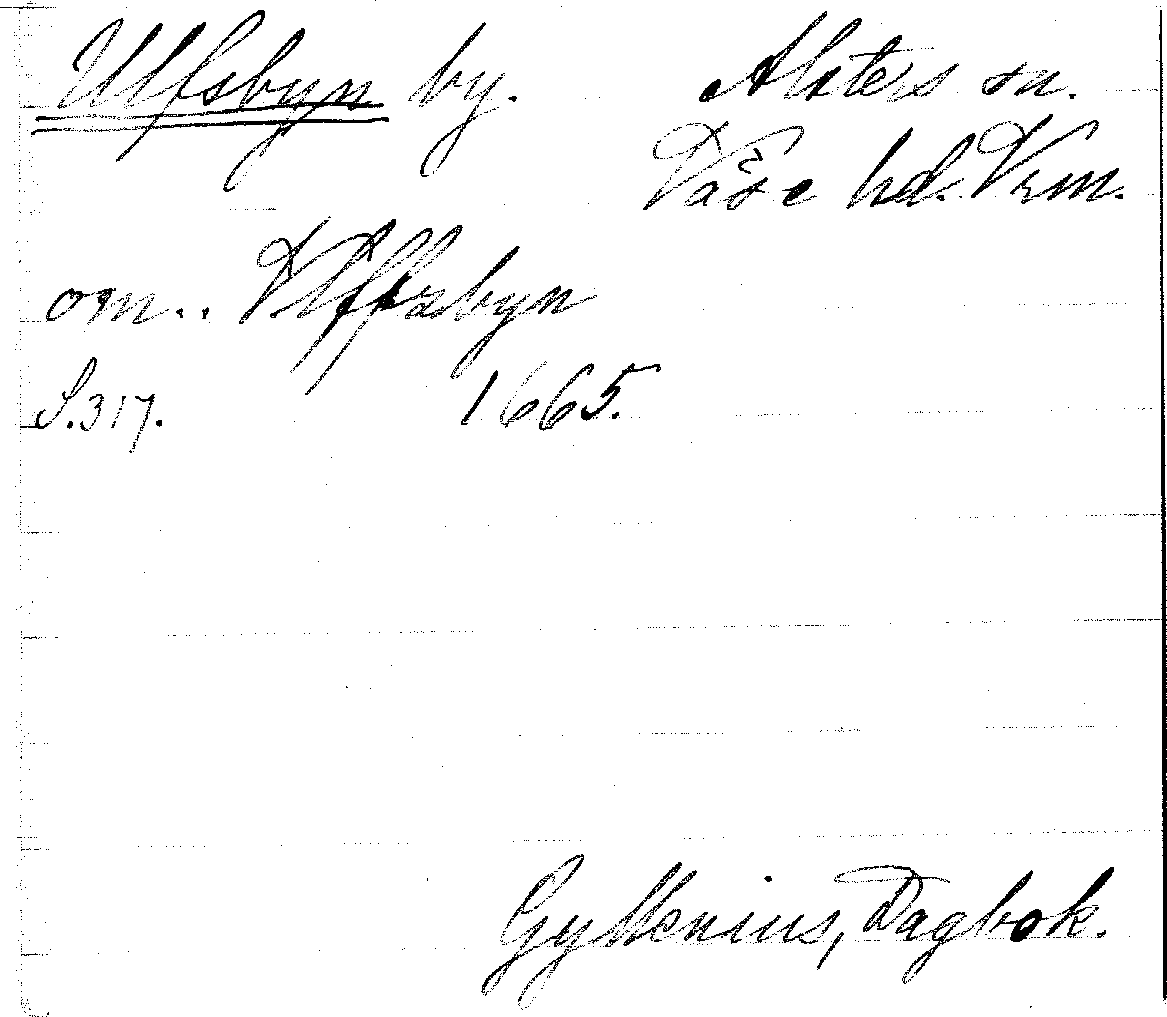 Ulfsbyn by. Alsters sn.
Väse hd. Vrm.
om.. Vlffzbyn
S.317. 1665.
Gyllenius, Dagbok.